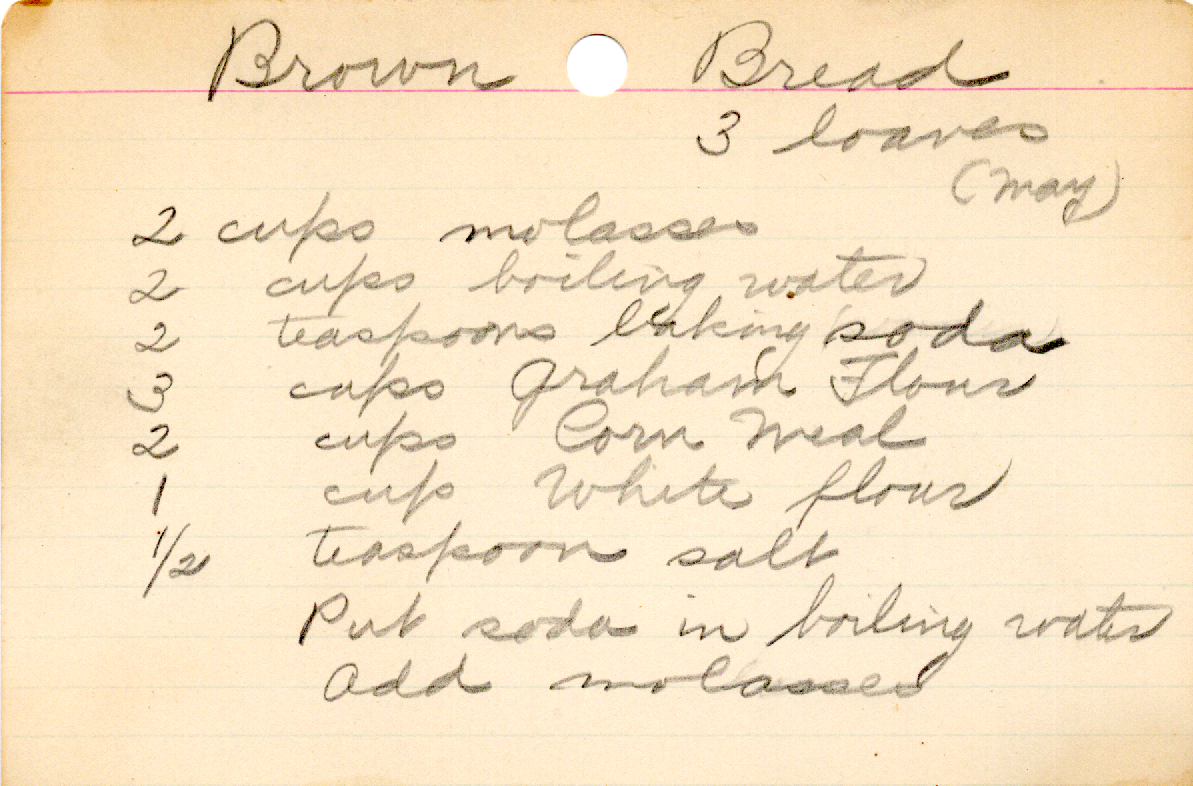 Brown Bread
3 loaves
(May)
2 cups molasses
2 cups boiling water
2 teaspoons baking soda
3 cups Graham Flour
2 cups Corn Meal
1 cup White flour
1/2 teaspoon salt
Put soda in boiling water
Add molasses